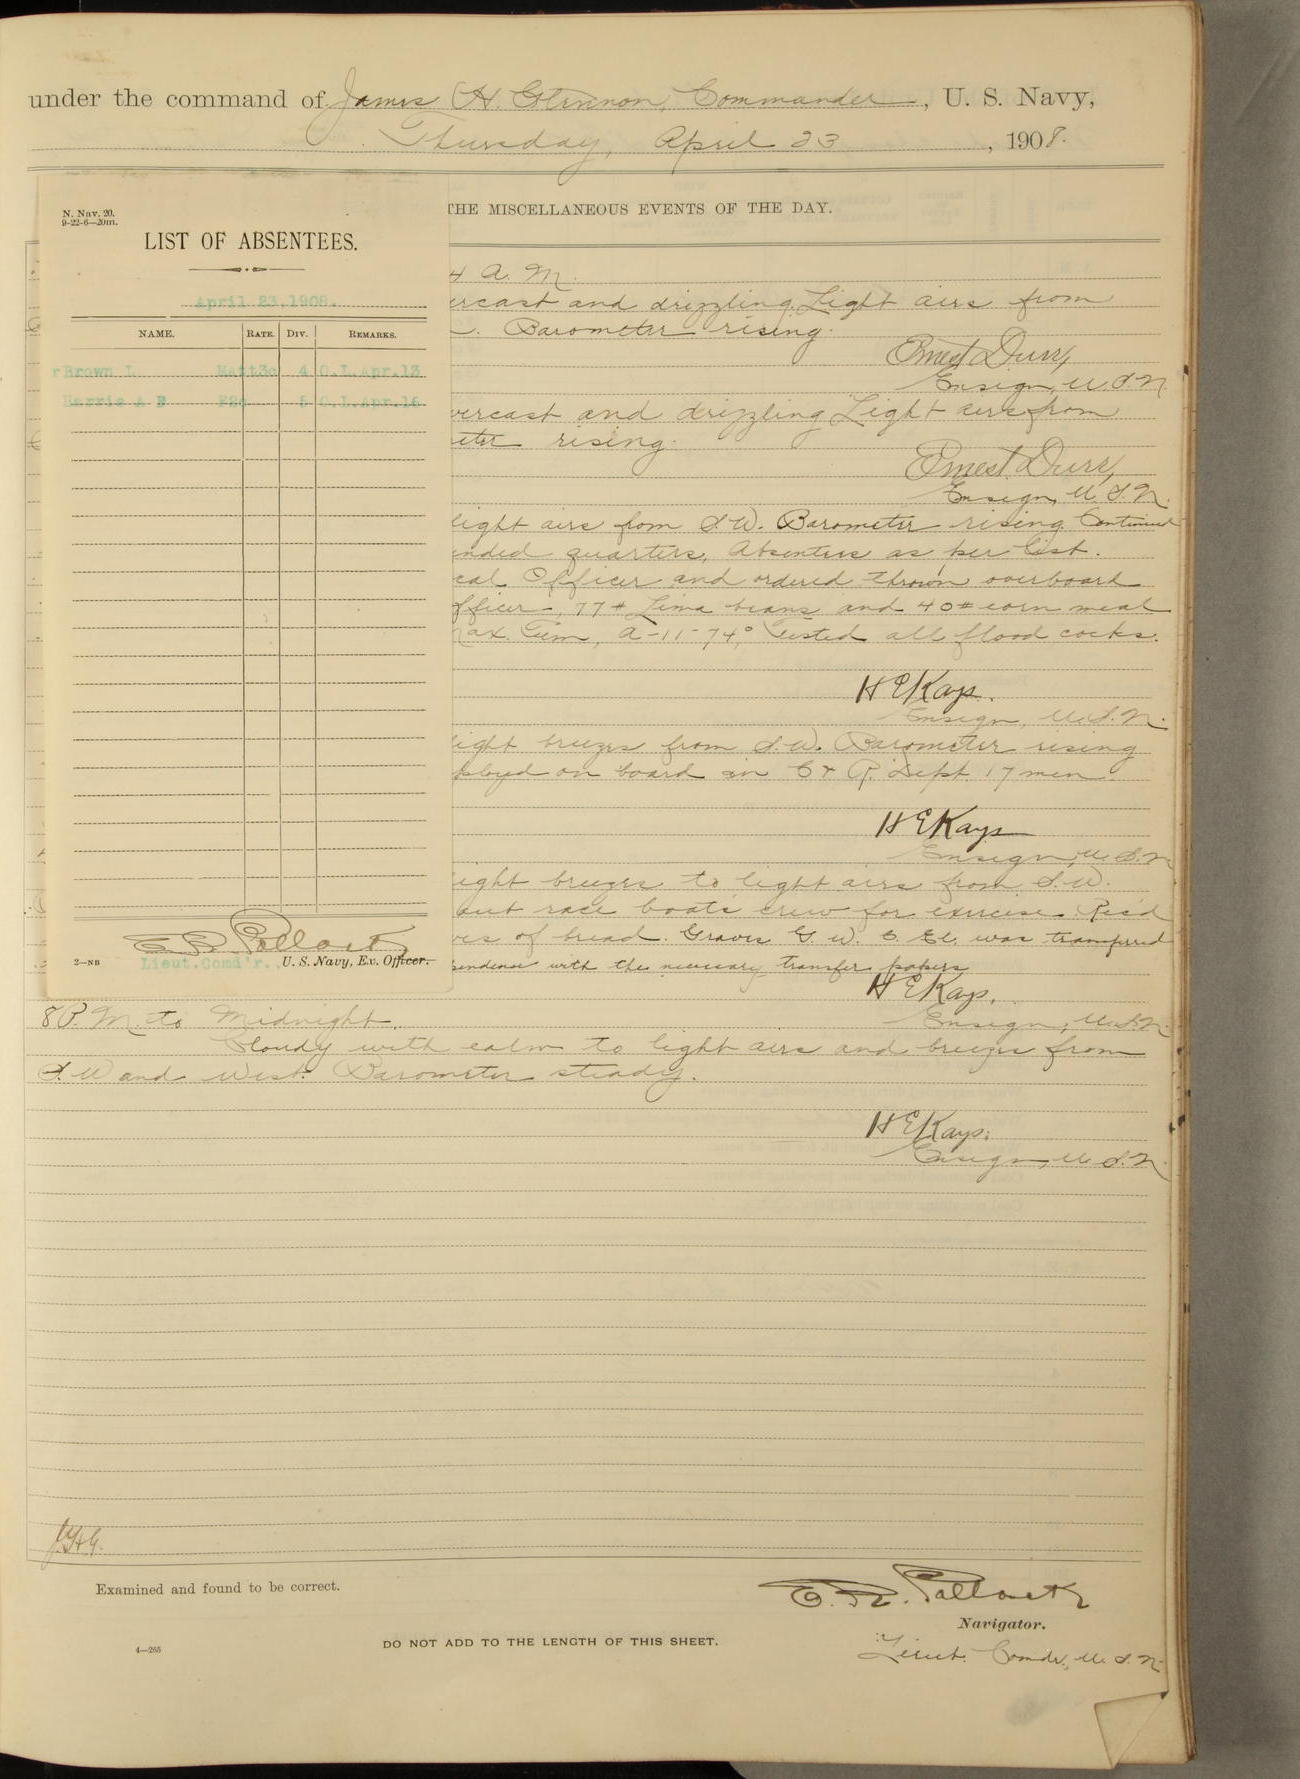 under the command of James H. Glennon, Commander, U. S. Navy,
Thursday, April 23, 1908.
THE MISCELLANEOUS EVENTS OF THE DAY.
N. Nav. 20.
9-22-6—20m.
LIST OF ABSENTEES.
April 23, 1908.
NAME. RATE. Div. REMARKS.
Brown L Matt3c 4 O.L.Apr.13
Harris A B F2c 5 O.L.Apr.16
E R Pollock
2—NB Lieut.Comd'r., U. S. Navy, Ex. Officer.
4 A. M.
ercast and drizzling. Light airs from
Barometer rising.
Ernest Durr,
Ensign, U.S.N.
vercast and drizzling Light airs from
eter rising.
Ernest Durr,
Ensign, U.S.N.
light airs from S.W. Barometer rising Continued
ended quarters, Absentees as per list.
cal Officer and ordered thrown overboard
fficer-, 77# Lima beans and 40# corn meal
ax. Tem, A-11-74°, Tested all flood cocks.
H E Kays.
Ensign, U.S.N.
light breezes from S.W. Barometer rising
ployed on board in C & R. Dept. 17 men.
H E Kays
Ensign, U.S.N
light breezes to light airs from S.W.
out race boats crew for exercise. Rec'd
ves of bread. Graves G. W. C. El. was transferred
pendence with the necessary transfer papers
H E Kays.
8 P. M. to Midnight. Ensign, U.S.N.
Cloudy with calm to light airs and breezes from
S.W and West. Barometer steady.
H E Kays.
Ensign, U.S.N.
J.H.G.
Examined and found to be correct.
E. R. Pollock
Navigator.
4—265 DO NOT ADD TO THE LENGTH OF THIS SHEET.
Lieut. Comdr., U.S.N.